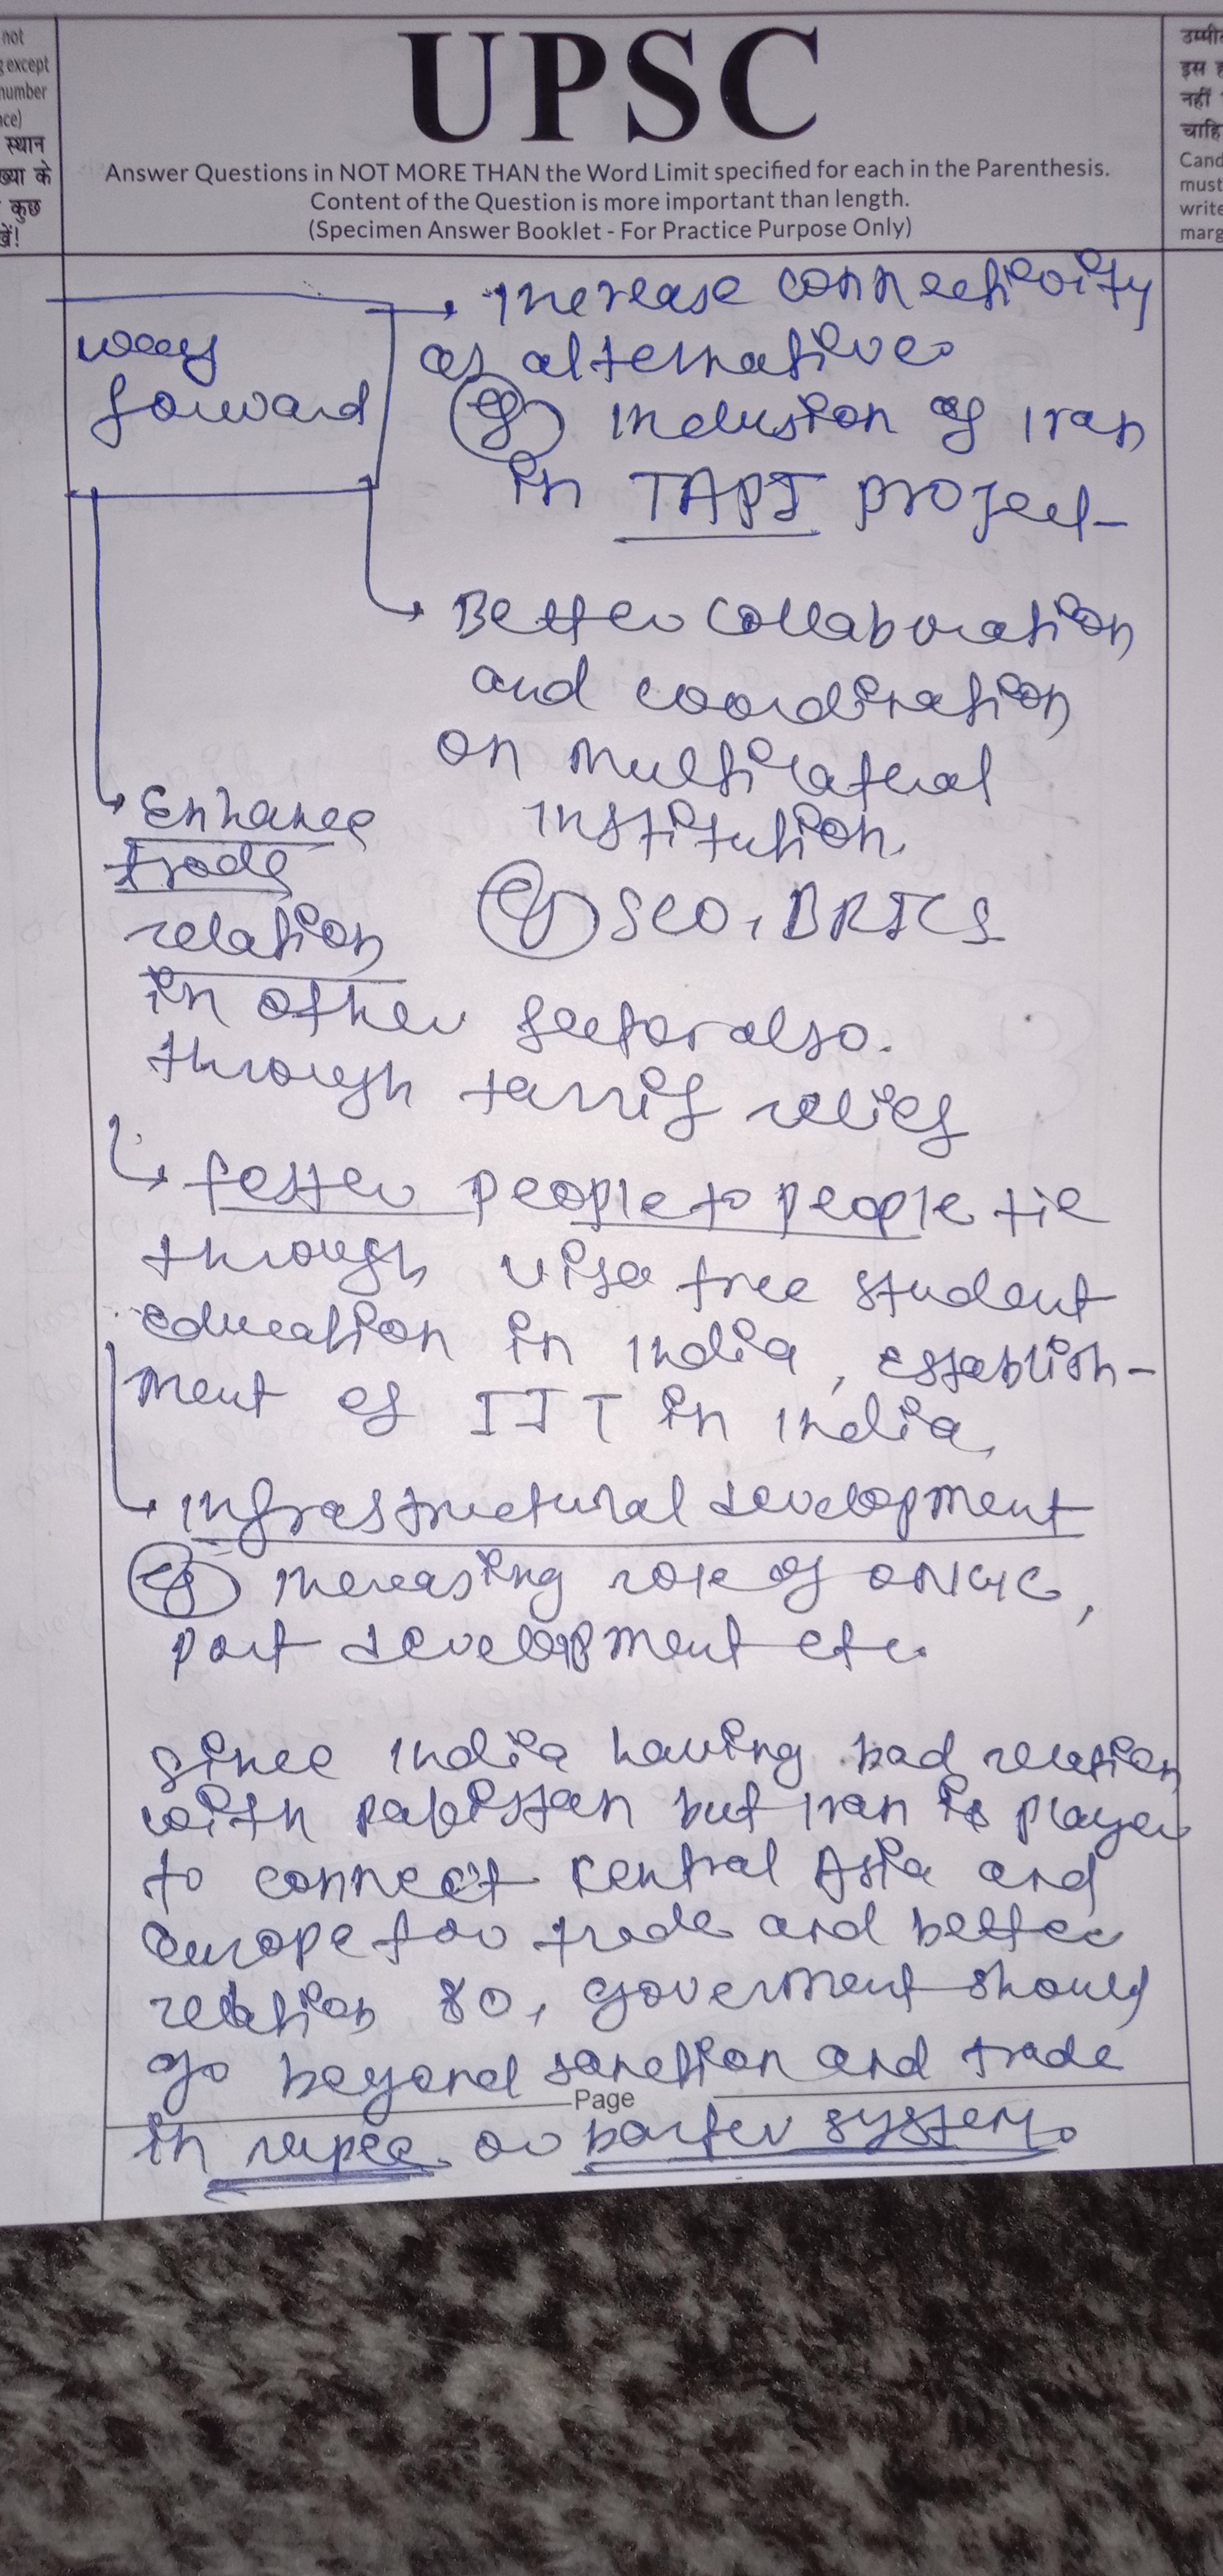 not
except
number
ce)
स्थान
ख्या के
कुछ
उम्मी
इस
नहीं
चाहि
Cand
must
write
marg
UPSC
Answer Questions in NOT MORE THAN the Word Limit specified for each in the Parenthesis.
Content of the Question is more important than length.
(Specimen Answer Booklet - For Practice Purpose Only)
way
forward
→ increase connectivity
as alternative
eg inclusion of Iran
in TAPI project
→ Better collaboration
and coordination
on multilateral
institution.
eg SCO, BRICS
→ Enhance
trade
relation
in other sector also.
through tarrif relief
→ foster people to people tie
through visa free student
education in India, establish-
ment of IIT in India,
→ infrastructural development
eg increasing role of ONGC,
port development etc.
since India having bad relation
with Pakistan but Iran is player
to connect central Asia and
Europe for trade and better
relation so, government should
go beyond sanction and trade
Page
in rupee or barter system.